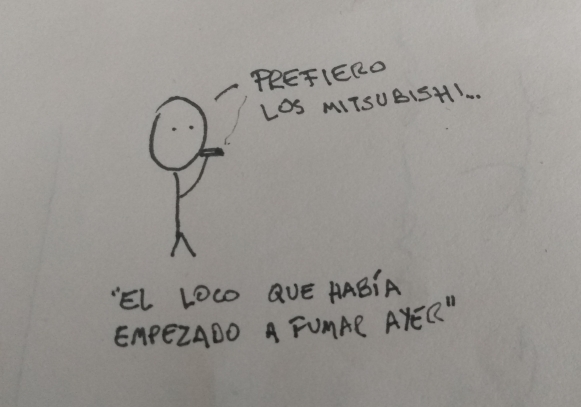 PREFIERO
LOS MITSUBISHI...
"EL LOCO QUE HABÍA
EMPEZADO A FUMAR AYER"